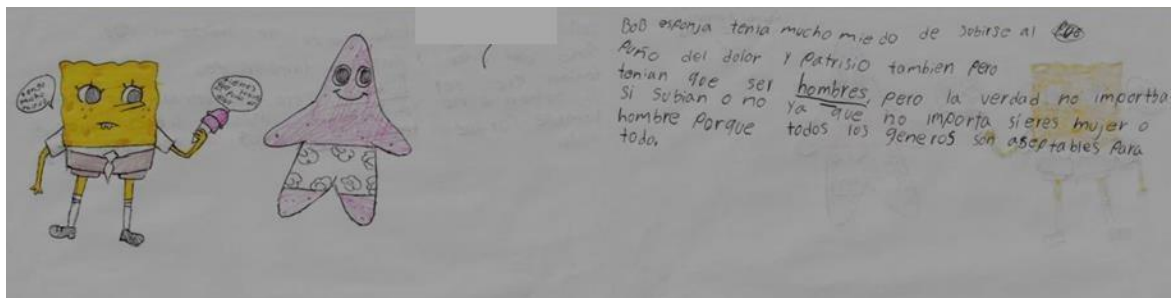 tengo mucho miedo
BoB esponja tenia mucho miedo de subirse al
Puño del dolor y Patrisio tambien Pero
tenian que ser hombres, Pero la verdad no importba
si subian o no ya que no importa si eres mujer o
hombre Porque todos los generos son aseptables Para
todo.